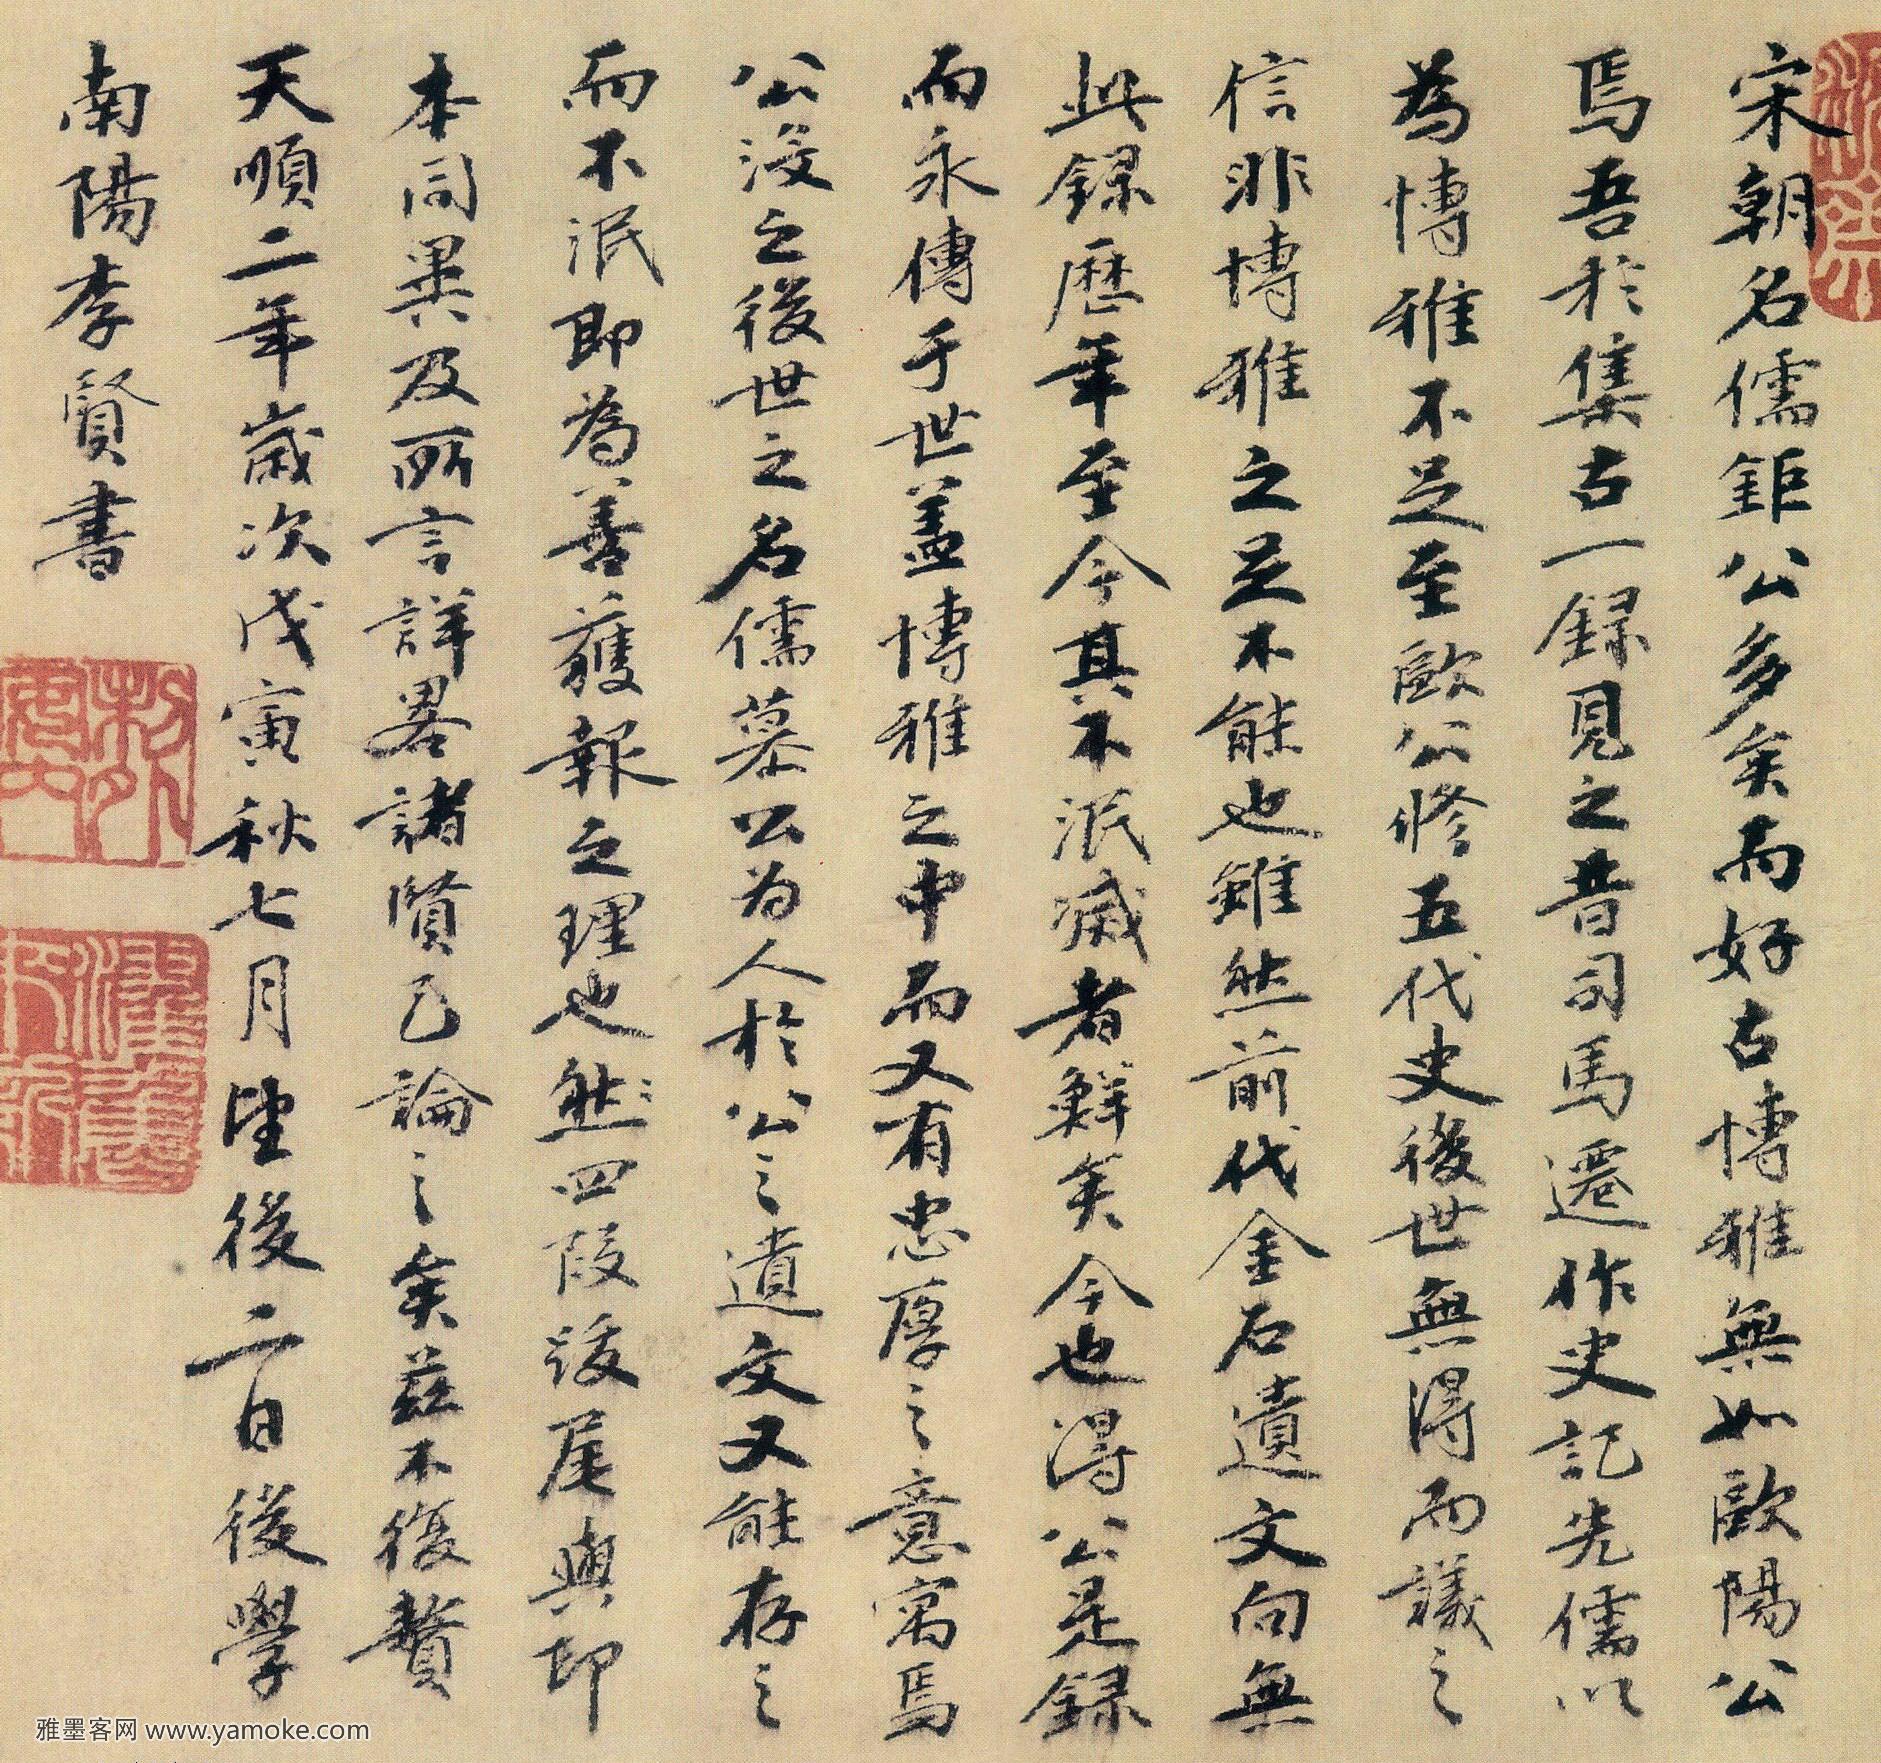 宋朝名儒鉅公多矣而好古博雅無如歐陽公
焉吾於集古一録見之昔司馬遷作史記先儒以
為博雅不足至歐公修五代史後世無得而議之
信非博雅之足不能也雖然前代金石遺文向無
此録歷年至今其不泯滅者鮮矣今也得公是録
而永傳于世蓋博雅之中而又有忠厚之意寓焉
公没之後世之名儒慕公为人於公之遺文又能存之
而不泯即為善獲報之理也然四段後尾與印
本同異及所言詳畧諸賢已論之矣茲不復贅
天順二年歲次戊寅秋七月望後二日後學
南陽李賢書
雅墨客网 www.yamoke.com